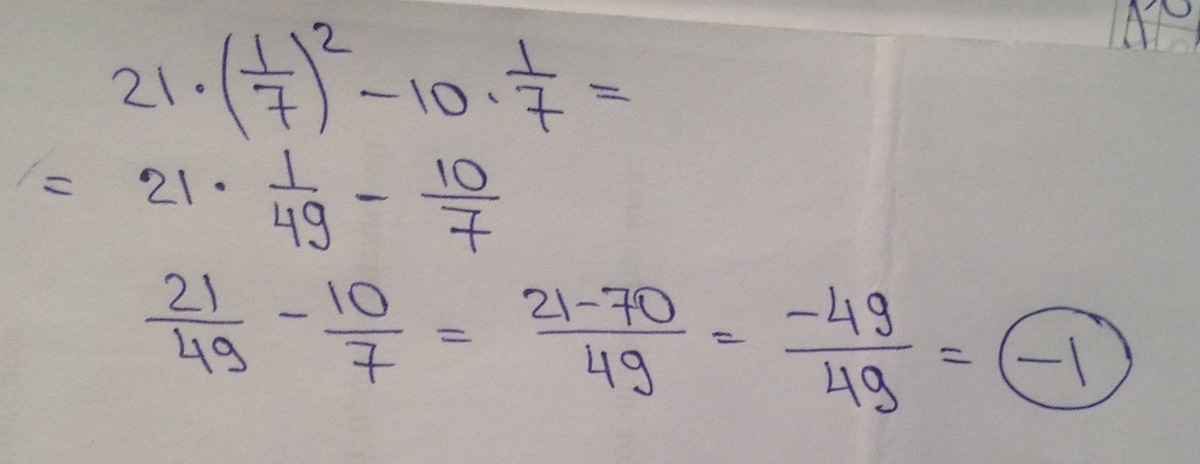 21·(1/7)² − 10·1/7 =
= 21· 1/49 − 10/7
21/49 − 10/7 = 21−70/49 = −49/49 = −1